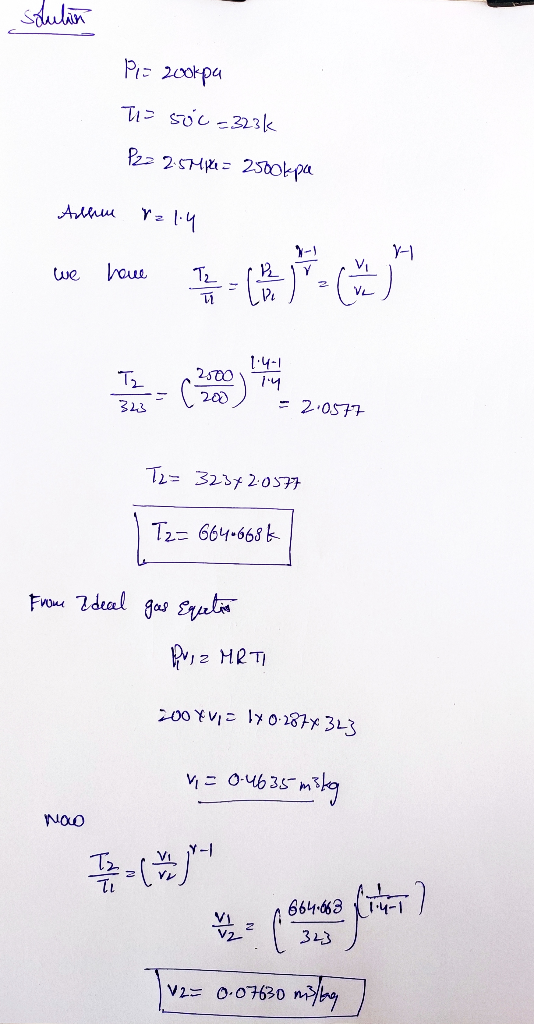 Solution
P1 = 200kpa
T1 = 50°C = 323k
P2 = 2.5Mpa = 2500kpa
Assume γ = 1.4
we have T2/T1 = (P2/P1)^(γ-1/γ) = (V1/V2)^(γ-1)
T2/323 = (2500/200)^(1.4-1/1.4) = 2.0577
T2 = 323 x 2.0577
T2 = 664.668k
From Ideal gas Equation
P1V1 = MRT1
200 x V1 = 1 x 0.287 x 323
V1 = 0.4635 m3/kg
Now
T2/T1 = (V1/V2)^(γ-1)
V1/V2 = (664.663/323)^(1/1.4-1)
V2 = 0.07630 m3/kg